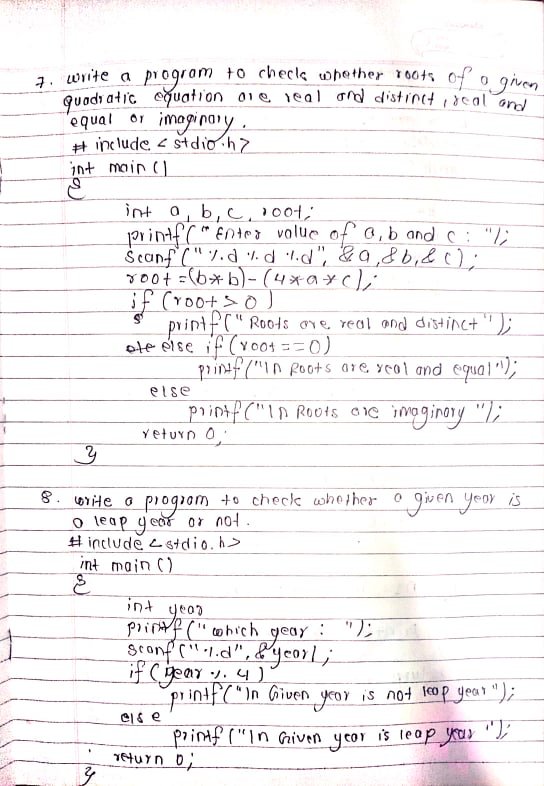 7. write a program to check whether roots of a given
quadratic equation are real and distinct, real and
equal or imaginary.
# include < stdio.h>
int main ()
{
int a, b, c, root;
printf(" Enter value of a, b and c : ");
scanf (" %d %d %d", &a, &b, & c);
root = (b*b) - (4*a*c);
if (root > 0)
printf(" Roots are real and distinct ");
else if (root == 0)
printf("\n Roots are real and equal");
else
printf("\n Roots are imaginary ");
return 0;
}
8. write a program to check whether a given year is
a leap year or not.
# include <stdio.h>
int main ()
{
int year
printf (" which year : ");
scanf (" %d", &year);
if (year % 4)
printf("\n Given year is not leap year");
else
printf ("\n Given year is leap year ");
return 0;
}